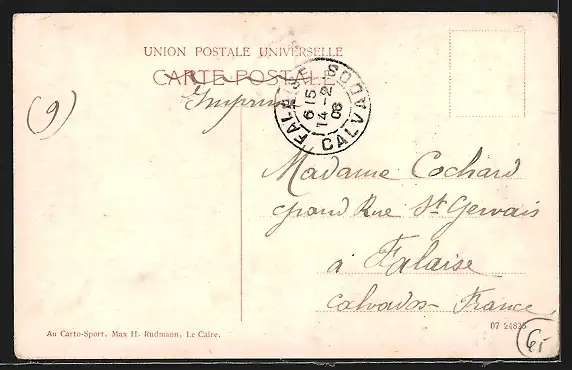 UNION POSTALE UNIVERSELLE
CARTE POSTALE
Imprimé
FALAISE CALVADOS
6 15
14 - 2
08
(9)
Madame Cochard
grand Rue St Gervais
à Falaise
Calvados France
Au Carto-Sport, Max H. Rudmann, Le Caire.
07 24825
6.-